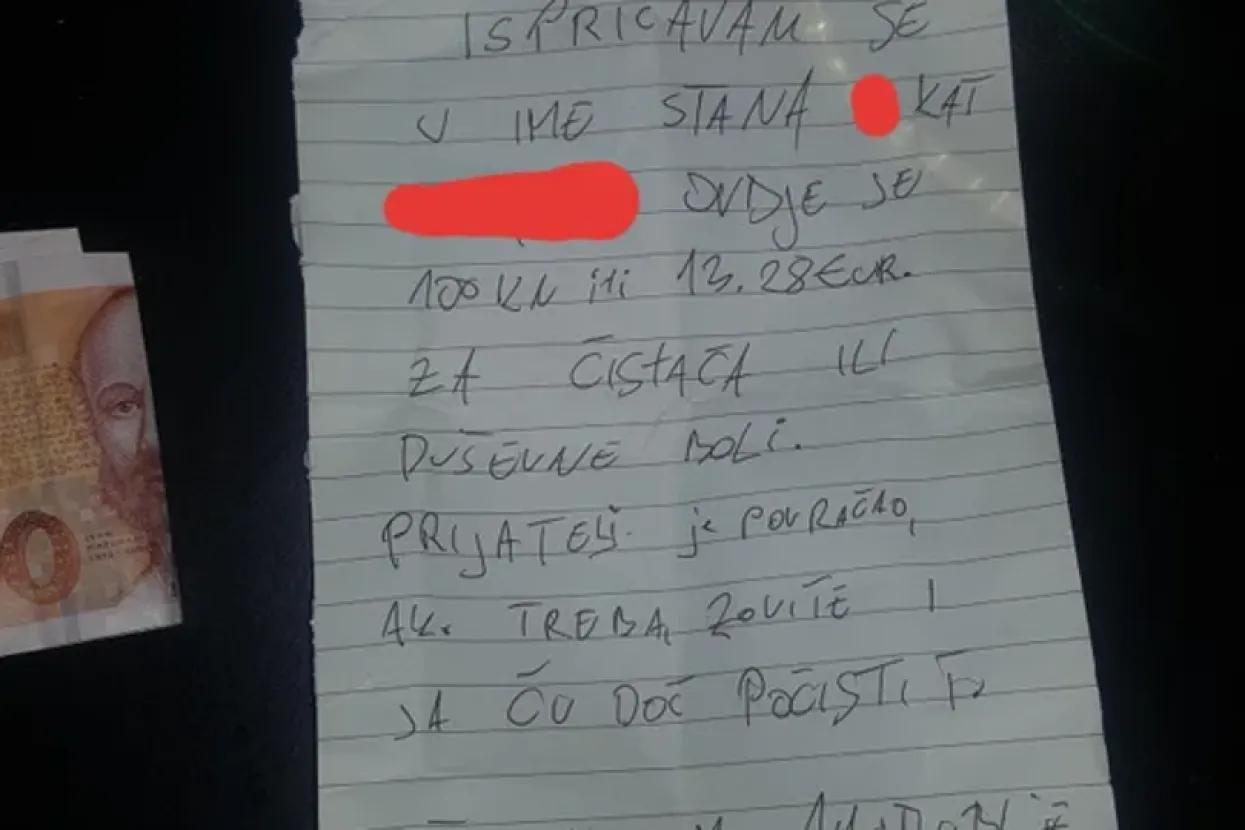 ISPRIČAVAM SE
U IME STANA KAT
OVDJE JE
100 KN ili 13.28 EUR.
ZA ČISTAČA ILI
DUŠEVNE BOLI.
PRIJATELJ je POVRAČAO,
AK. TREBA, ZOVITE I
JA ĆU DOĆ POČISTIT
0